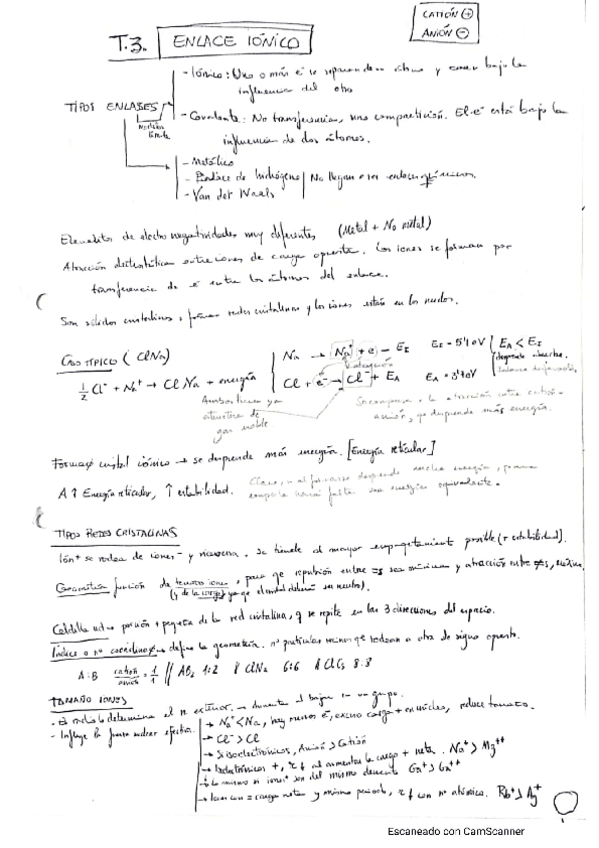 CATIÓN +
ANIÓN -
T.3. ENLACE IÓNICO
- Iónico: Uno o más e⁻ se separan de un átomo y caen bajo la
influencia del otro
TIPOS ENLACES
- Covalente: No transferencia, una compartición. El e⁻ está bajo la
influencia de dos átomos.
- Metálico
- Enlace de hidrógeno
- Van der Waals
No llegan a ser enlaces químicos.
Elementos de electronegatividades muy diferentes (Metal + No metal)
Atracción electrostática entre iones de carga opuesta. Los iones se forman por
transferencia de e⁻ entre los átomos del enlace.
Son sólidos cristalinos, forman redes cristalinas y los iones están en los nudos.
CASO TÍPICO (ClNa)
Na → Na⁺ + e⁻ - EI EI = 5'1 eV EA < EI
Cl + e⁻ → Cl⁻ + EA EA = 3'4 eV
Ambos tienen ya
estructura de
gas noble
Formar cristal iónico → se desprende más energía. [Energía reticular]
A ↑ Energía reticular, ↑ estabilidad.
TIPOS REDES CRISTALINAS
Ión⁺ se rodea de iones⁻ y viceversa. Se tiende al mayor empaquetamiento posible (+ estabilidad).
Geometría función de tamaño iones, para que repulsión entre = sea mínima y atracción entre ≠s, máxima.
(y de la carga) ya que el cristal deberá ser neutro
Celdilla unidad porción + pequeña de la red cristalina, q se repite en las 3 direcciones del espacio.
Índice o nº coordinación define la geometría. nº partículas vecinas que rodean a otra de signo opuesto.
A:B catión/anión = 1/1 // AB₂ 1:2 ClNa 6:6 ClCs 8:8
TAMAÑO IONES
- El radio lo determina el n exterior. → Aumenta al bajar en un grupo.
- Influye la fuerza nuclear efectiva.
→ Na⁺ < Na, hay menos e⁻, exceso carga + en núcleo, reduce tamaño.
→ Cl⁻ > Cl
→ Si isoelectrónicos, Anión > Catión
→ Isoelectrónicos +, r ↓ al aumentar la carga + neta. Na⁺ > Mg⁺⁺
→ Iones con = carga neta y mismo periodo, r ↓ con nº atómico. Rb⁺ > Ag⁺
Escaneado con CamScanner